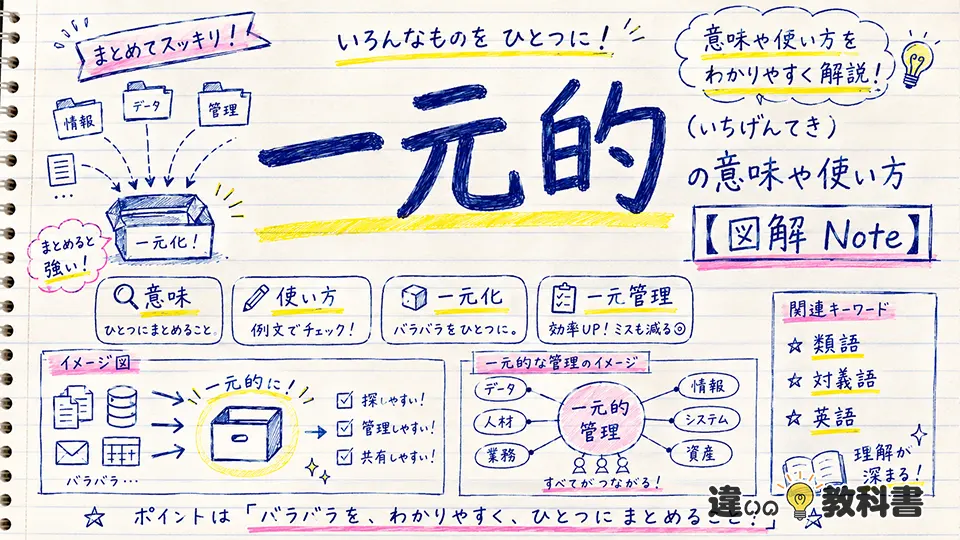 まとめてスッキリ！
いろんなものを ひとつに！
意味や使い方を
わかりやすく解説！
情報
データ
管理
一元化！
まとめると
強い！
一元的
（いちげんてき）
の意味や使い方
【図解 Note】
意味
ひとつにまとめること。
使い方
例文でチェック！
一元化
バラバラをひとつに。
一元管理
効率UP！ミスも減る◎
イメージ図
バラバラ…
一元的に！
探しやすい！
管理しやすい！
共有しやすい！
一元的な管理のイメージ
データ
人材
業務
一元的
管理
情報
システム
資産
すべてがつながる！
関連キーワード
☆ 類語
☆ 対義語
☆ 英語
理解が
深まる！
☆ ポイントは「バラバラを、わかりやすく、ひとつに まとめること！」☆
違いの教科書